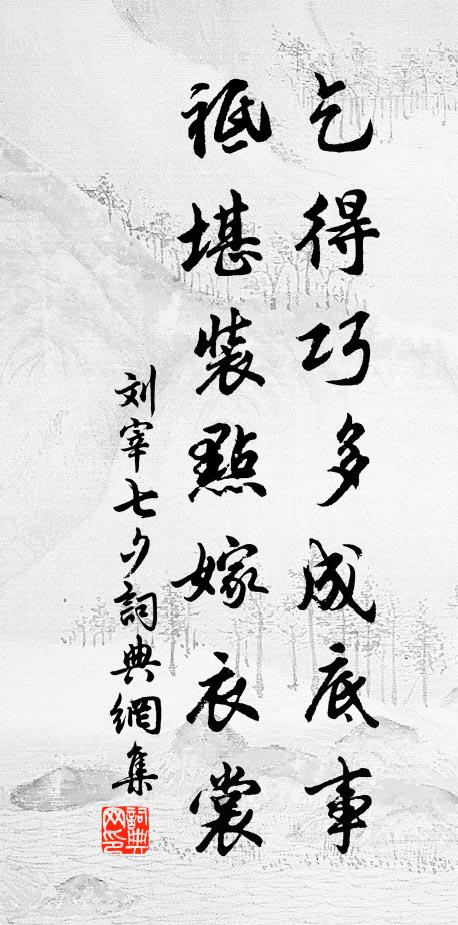 乞得巧多成底事
祗堪裝點嫁衣裳
刘宰七夕詞典網集
詞典
网印